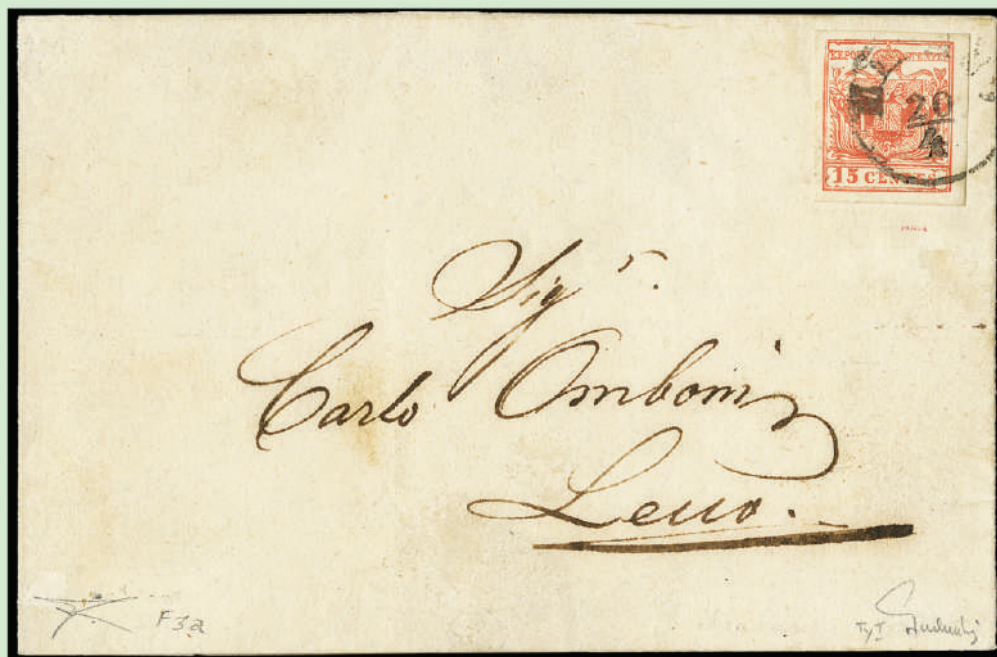 15 CENTES
20
4
Sig r.
Carlo Omboni
Lecco.
F3a
Ty I